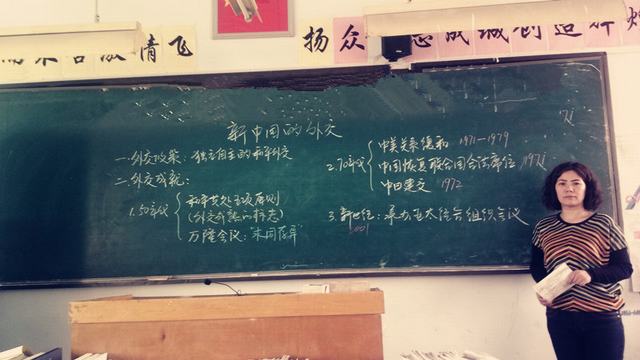 激情飞扬 众志成城创造辉
新中国的外交
一.外交政策:独立自主的和平外交
二.外交成就:
1.50年代
和平共处五项原则
(外交成熟的标志)
万隆会议:"求同存异"
2.70年代
中美关系缓和 1971—1979
中国恢复联合国合法席位 1971
中日建交 1972
3.新世纪:承办亚太经合组织会议
2001